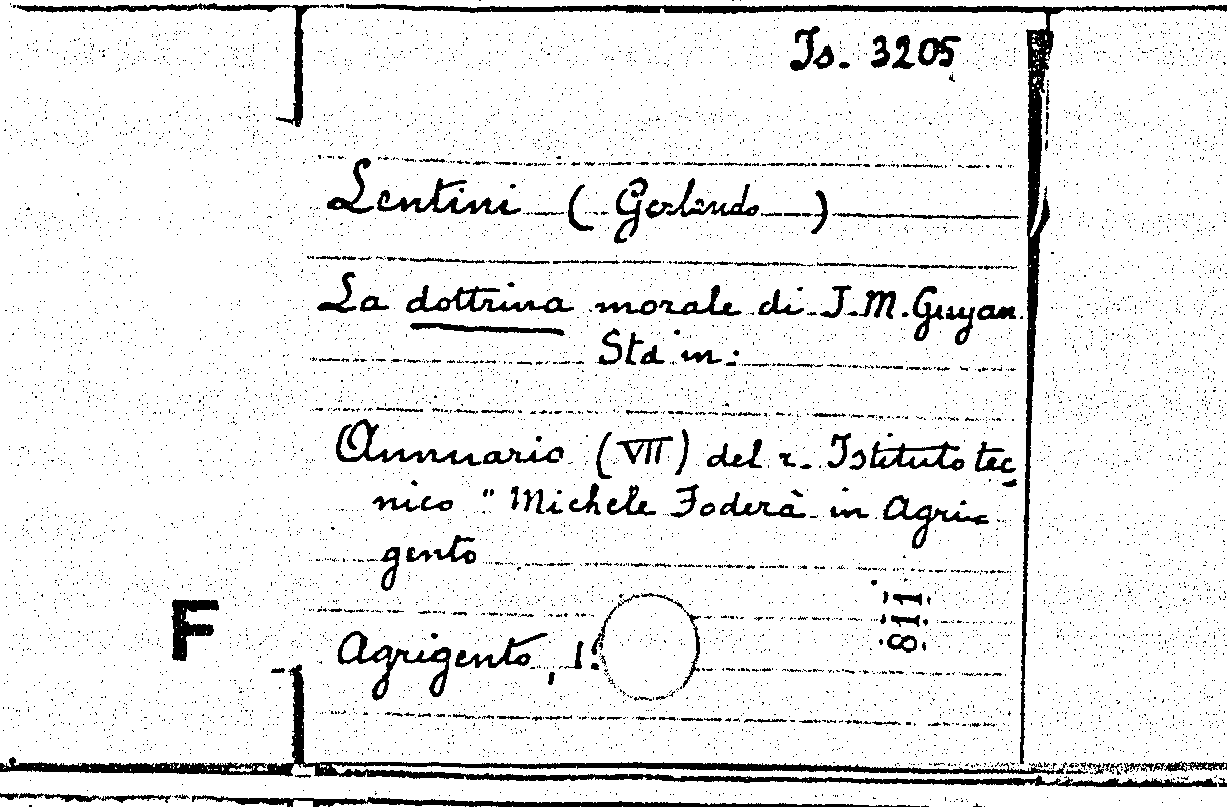 Is. 3205
Lentini (Gerlando)
La dottrina morale di J.M. Guyau.
Sta in:
Annuario (VII) del r. Istituto tec-
nico "Michele Foderà in Agri-
gento
811
F
Agrigento, 1